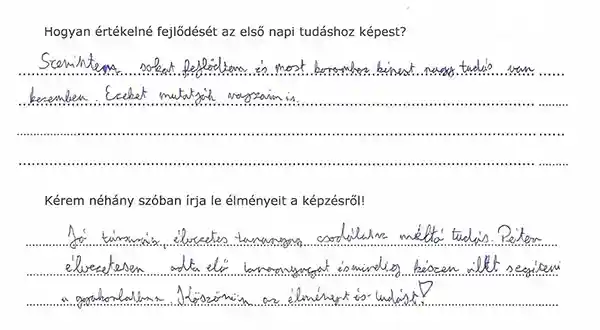 Hogyan értékelné fejlődését az első napi tudáshoz képest?
Szerintem sokat fejlődtem és most koromhoz képest nagy tudás van
kezemben. Ezeket mutatják vizsgáim is.
Kérem néhány szóban írja le élményeit a képzésről!
Jó társaság, élvezetes tananyag, csodálatra méltó tudás. Péter
élvezetesen adta elő tananyagát és mindig készen állt segíteni
a gyakorlatban. Köszönöm az élményt és tudást!